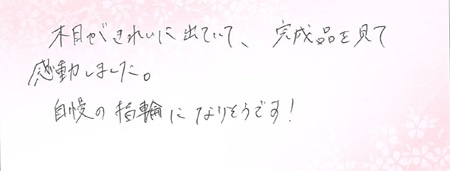 木目がきれいに出ていて、完成品を見て
感動しました。
自慢の指輪になりそうです！